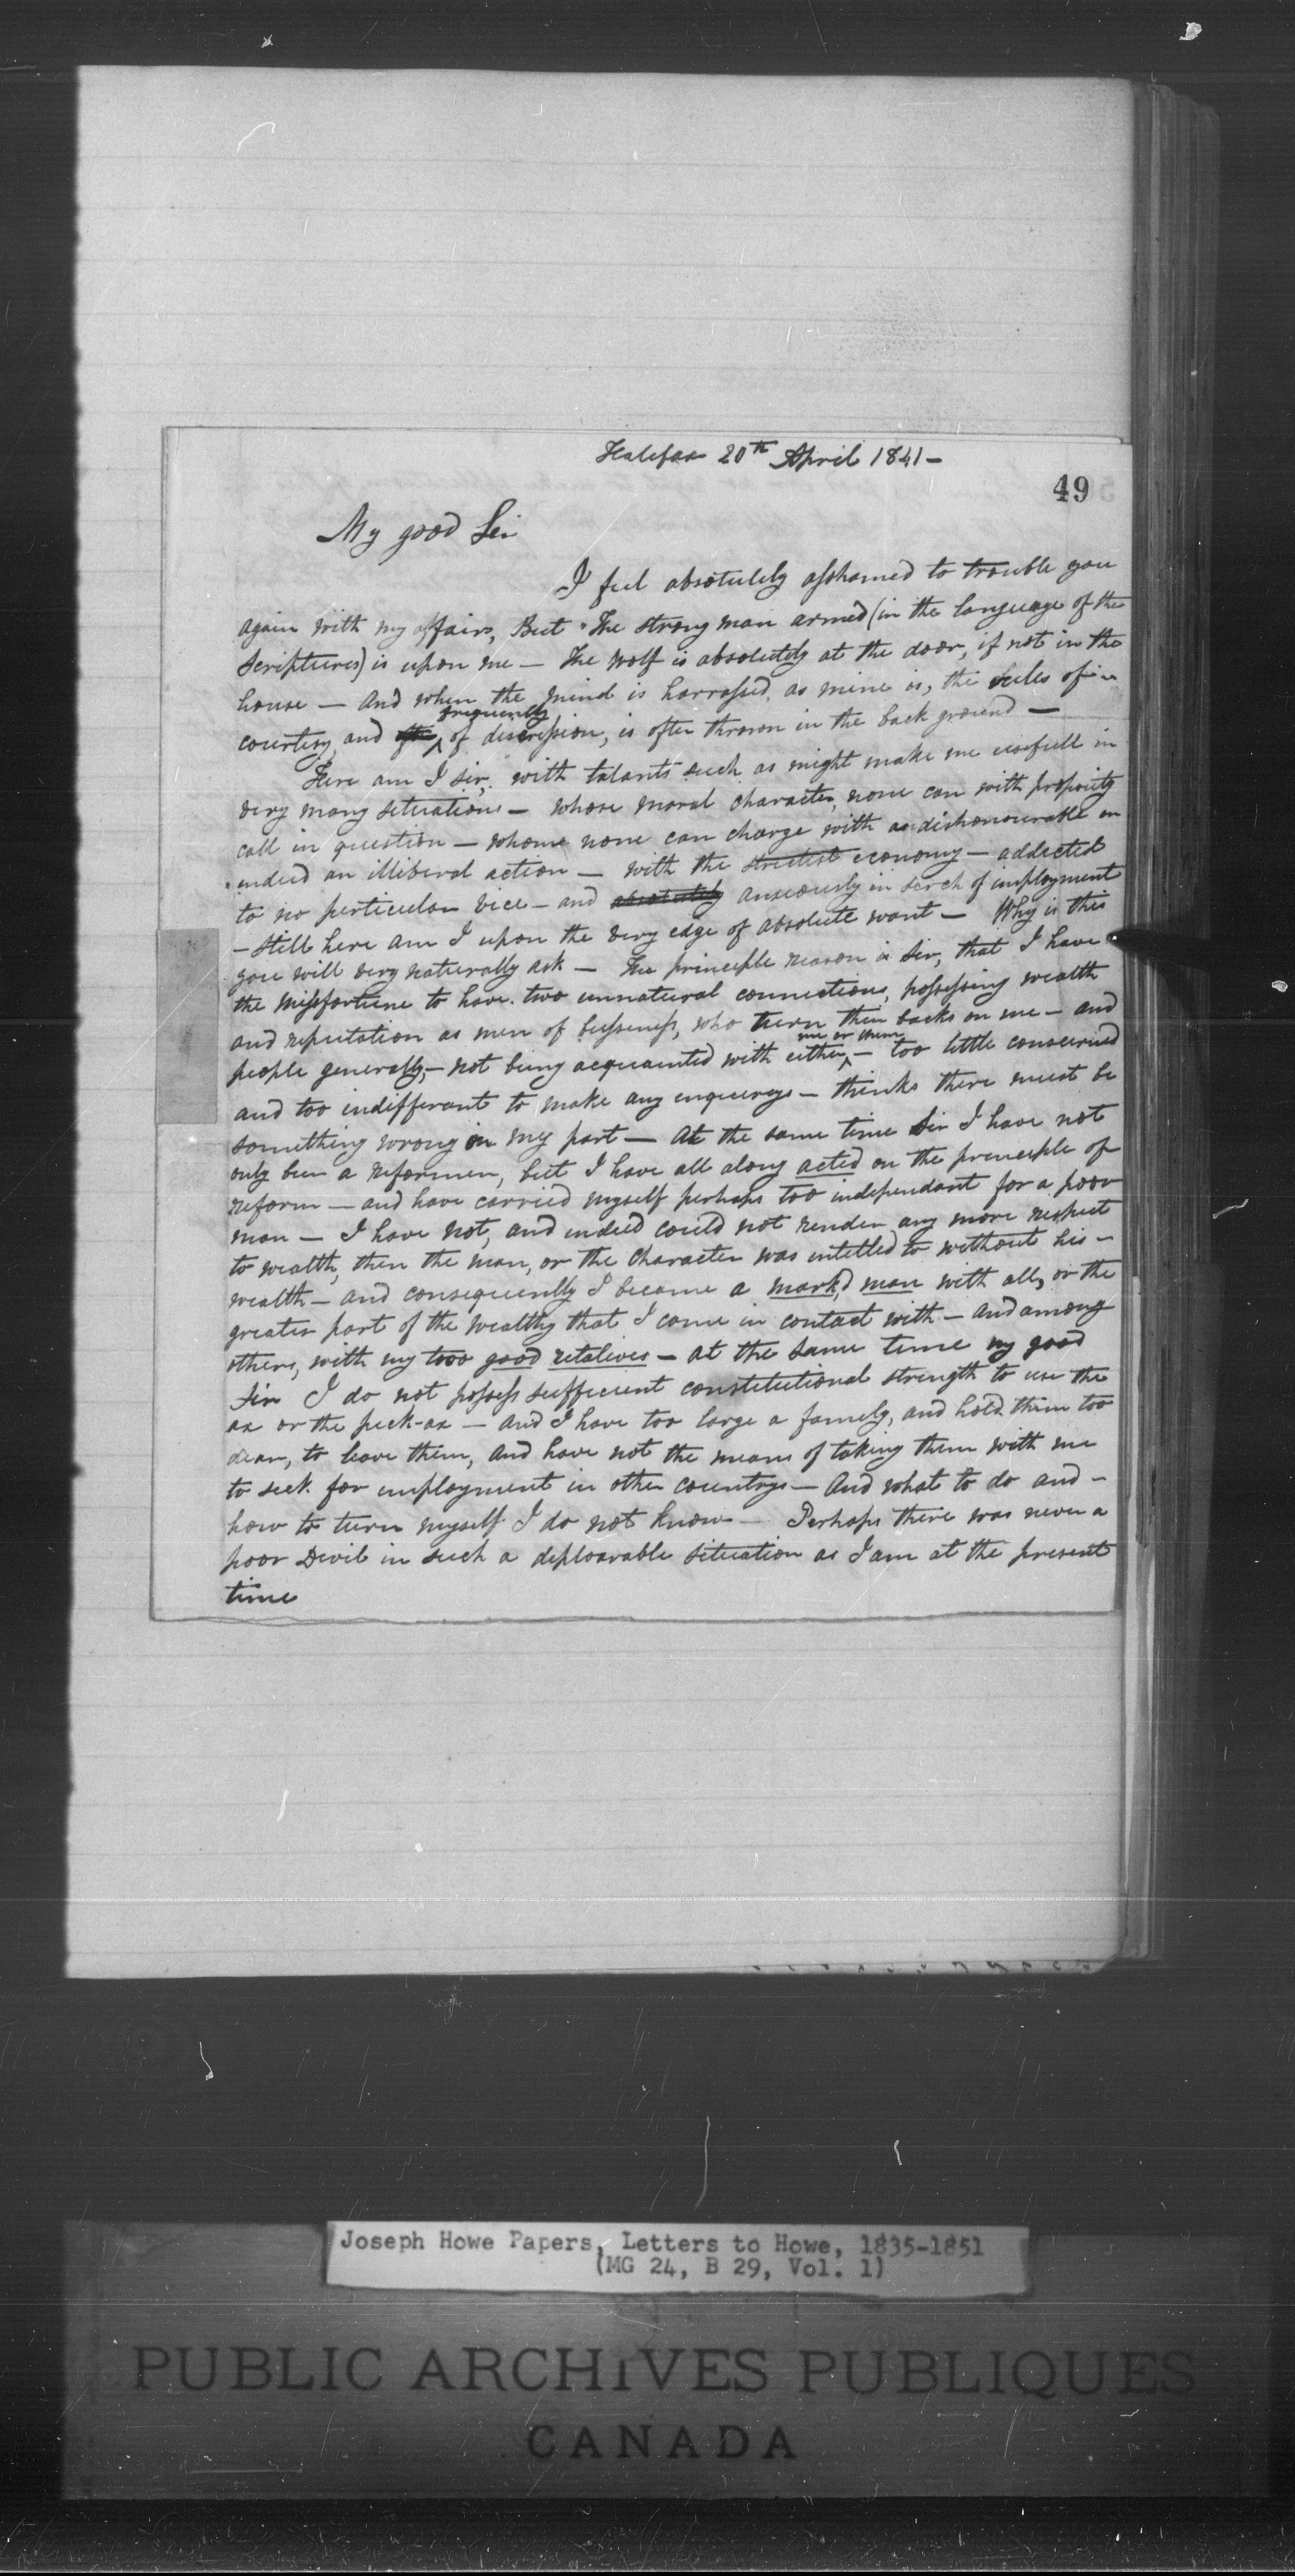 Halifax 20th April 1841 –
49
My good Sir
I feel absolutely asshamed to trouble you
again with my affairs, But "The strong man armed (in the language of the
Scriptures) is upon me – The wolf is absolutely at the door, if not in the
house – And when the mind is harrassed, as mine is, the rules of
frequently
courtesy, and of discression, is often thrown in the back ground –
Here am I sir, with talants such as might make me usefull in
very many situations – whose moral character, none can with propriety
call in question – whome none can charge with a dishonourable or
indeed an illiberal action – with the strictest economy – addicted
to no perticular vice – and absolutely anxiously in serch of imployment
– still here am I upon the very edge of absolute want – Why is this
you will very naturally ask – The principle reason is Sir, that I have
the missfortune to have two unnatural connections, possessing wealth
and reputation as men of bussiness, who turn their backs on me – and
me or them
people generally, – not being acquainted with either, – too little conscerned
and too indifferant to make any enquirys – thinks there must be
something wrong on my part – At the same time Sir I have not
only been a reformer, but I have all along acted on the principle of
reform – and have carried myself perhaps too independant for a poor
man – I have not, and indeed could not render any more respect
to wealth, then the man, or the character was intitled to without his –
wealth – and consequently I became a mark'd man with all, or the
greater part of the wealthy that I come in contact with – and among
others, with my two good retalives – at the same time my good
Sir I do not possess sufficient constitutional strength to use the
ax or the peck-ax – and I have too large a family, and hold them too
dear, to leave them, and have not the means of taking them with me
to seek for imployment in other countrys – And what to do and –
how to turn myself I do not know – Perhaps there was never a
poor Devil in such a deploarable situation as I am at the present
time
Joseph Howe Papers, Letters to Howe, 1835-1851
(MG 24, B 29, Vol. 1)
PUBLIC ARCHIVES PUBLIQUES
CANADA